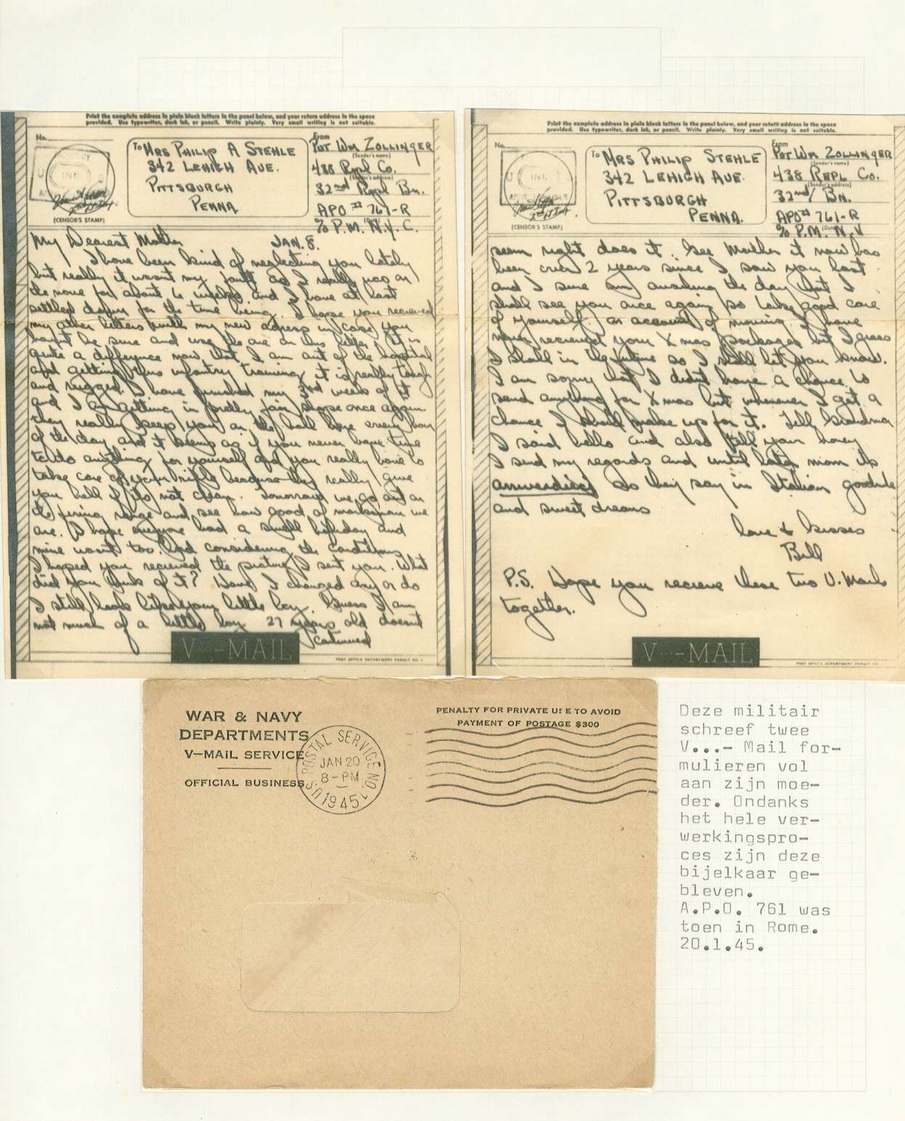 Print the complete address in plain block letters in the panel below, and your return address in the space
provided. Use typewriter, dark ink, or pencil. Write plainly. Very small writing is not suitable.
No.
(CENSOR'S STAMP)
To
MRS PHILIP A STEHLE
342 LEHIGH AVE.
PITTSBURGH
PENNA
From
PVT WM ZOLLINGER
(Sender's name)
438 REPL CO.
(Sender's address)
32nd REPL BN.
APO # 761-R
(Date)
% P.M. N.Y.C.
JAN. 8.
My Dearest Mother
I have been kind of neglecting you lately
but really it wasnt my fault as I really was on
the move for about 6 weeks and I have at last
settled down for the time being. I hope you received
my other letters with my new adress in case you
havent be sure and use the one on this letter. It is
quite a difference now that I am out of the hospital
and getting infantry training it is really tough
and rugged. I have finished my 2nd weeks of it
and I am getting in pretty fair shape once again
they really keep you on the ball here every hour
of the day and it seems as if you never have time
to do anything for yourself and you really have to
take care of your rifle because they really give
you hell if its not clean. Tomorrow we go out on
the firing range and see how good a marksman we
are. I hope everyone had a swell holiday and
mine wasnt too bad considering the conditions
I hoped you received the picture I sent you. What
did you think of it? Have I changed any or do
I still look like your little boy. Guess I am
not much of a little boy 27 years old doesnt
continued
V···—MAIL
POST OFFICE DEPARTMENT PERMIT NO. 1
Print the complete address in plain block letters in the panel below, and your return address in the space
provided. Use typewriter, dark ink, or pencil. Write plainly. Very small writing is not suitable.
No.
(CENSOR'S STAMP)
To
MRS PHILIP STEHLE
342 LEHIGH AVE.
PITTSBURGH
PENNA.
From
PVT WM ZOLLINGER
(Sender's name)
438 REPL CO.
(Sender's address)
32nd BN.
APO # 761-R
(Date)
% P.M. N.Y
seem right does it. Gee Mother it now has
been over 2 years since I saw you last
and I sure am awaiting the day that I
shall see you once again so take good care
of yourself. On account of moving I have
never received your Xmas packages but I guess
I shall in the future so I will let you know.
I am sorry but I didnt have a chance to
send anything for Xmas but whenever I get a
chance I shall make up for it. Tell Grandma
I said hello and also tell your honey
I send my regards and until later mom its
as they say in Italian goodnite
and sweet dreams
love & kisses
Bill
P.S. Hope you recieve these two V. Mails
together.
V···—MAIL
POST OFFICE DEPARTMENT PERMIT NO.
WAR & NAVY
DEPARTMENTS
V—MAIL SERVICE
OFFICIAL BUSINESS
U.S. POSTAL SERVICE NO.
JAN 20
8-PM
1945
PENALTY FOR PRIVATE USE TO AVOID
PAYMENT OF POSTAGE $300
Deze militair
schreef twee
V...- Mail for-
mulieren vol
aan zijn moe-
der. Ondanks
het hele ver-
werkingspro-
ces zijn deze
bijelkaar ge-
bleven.
A.P.O. 761 was
toen in Rome.
20.1.45.